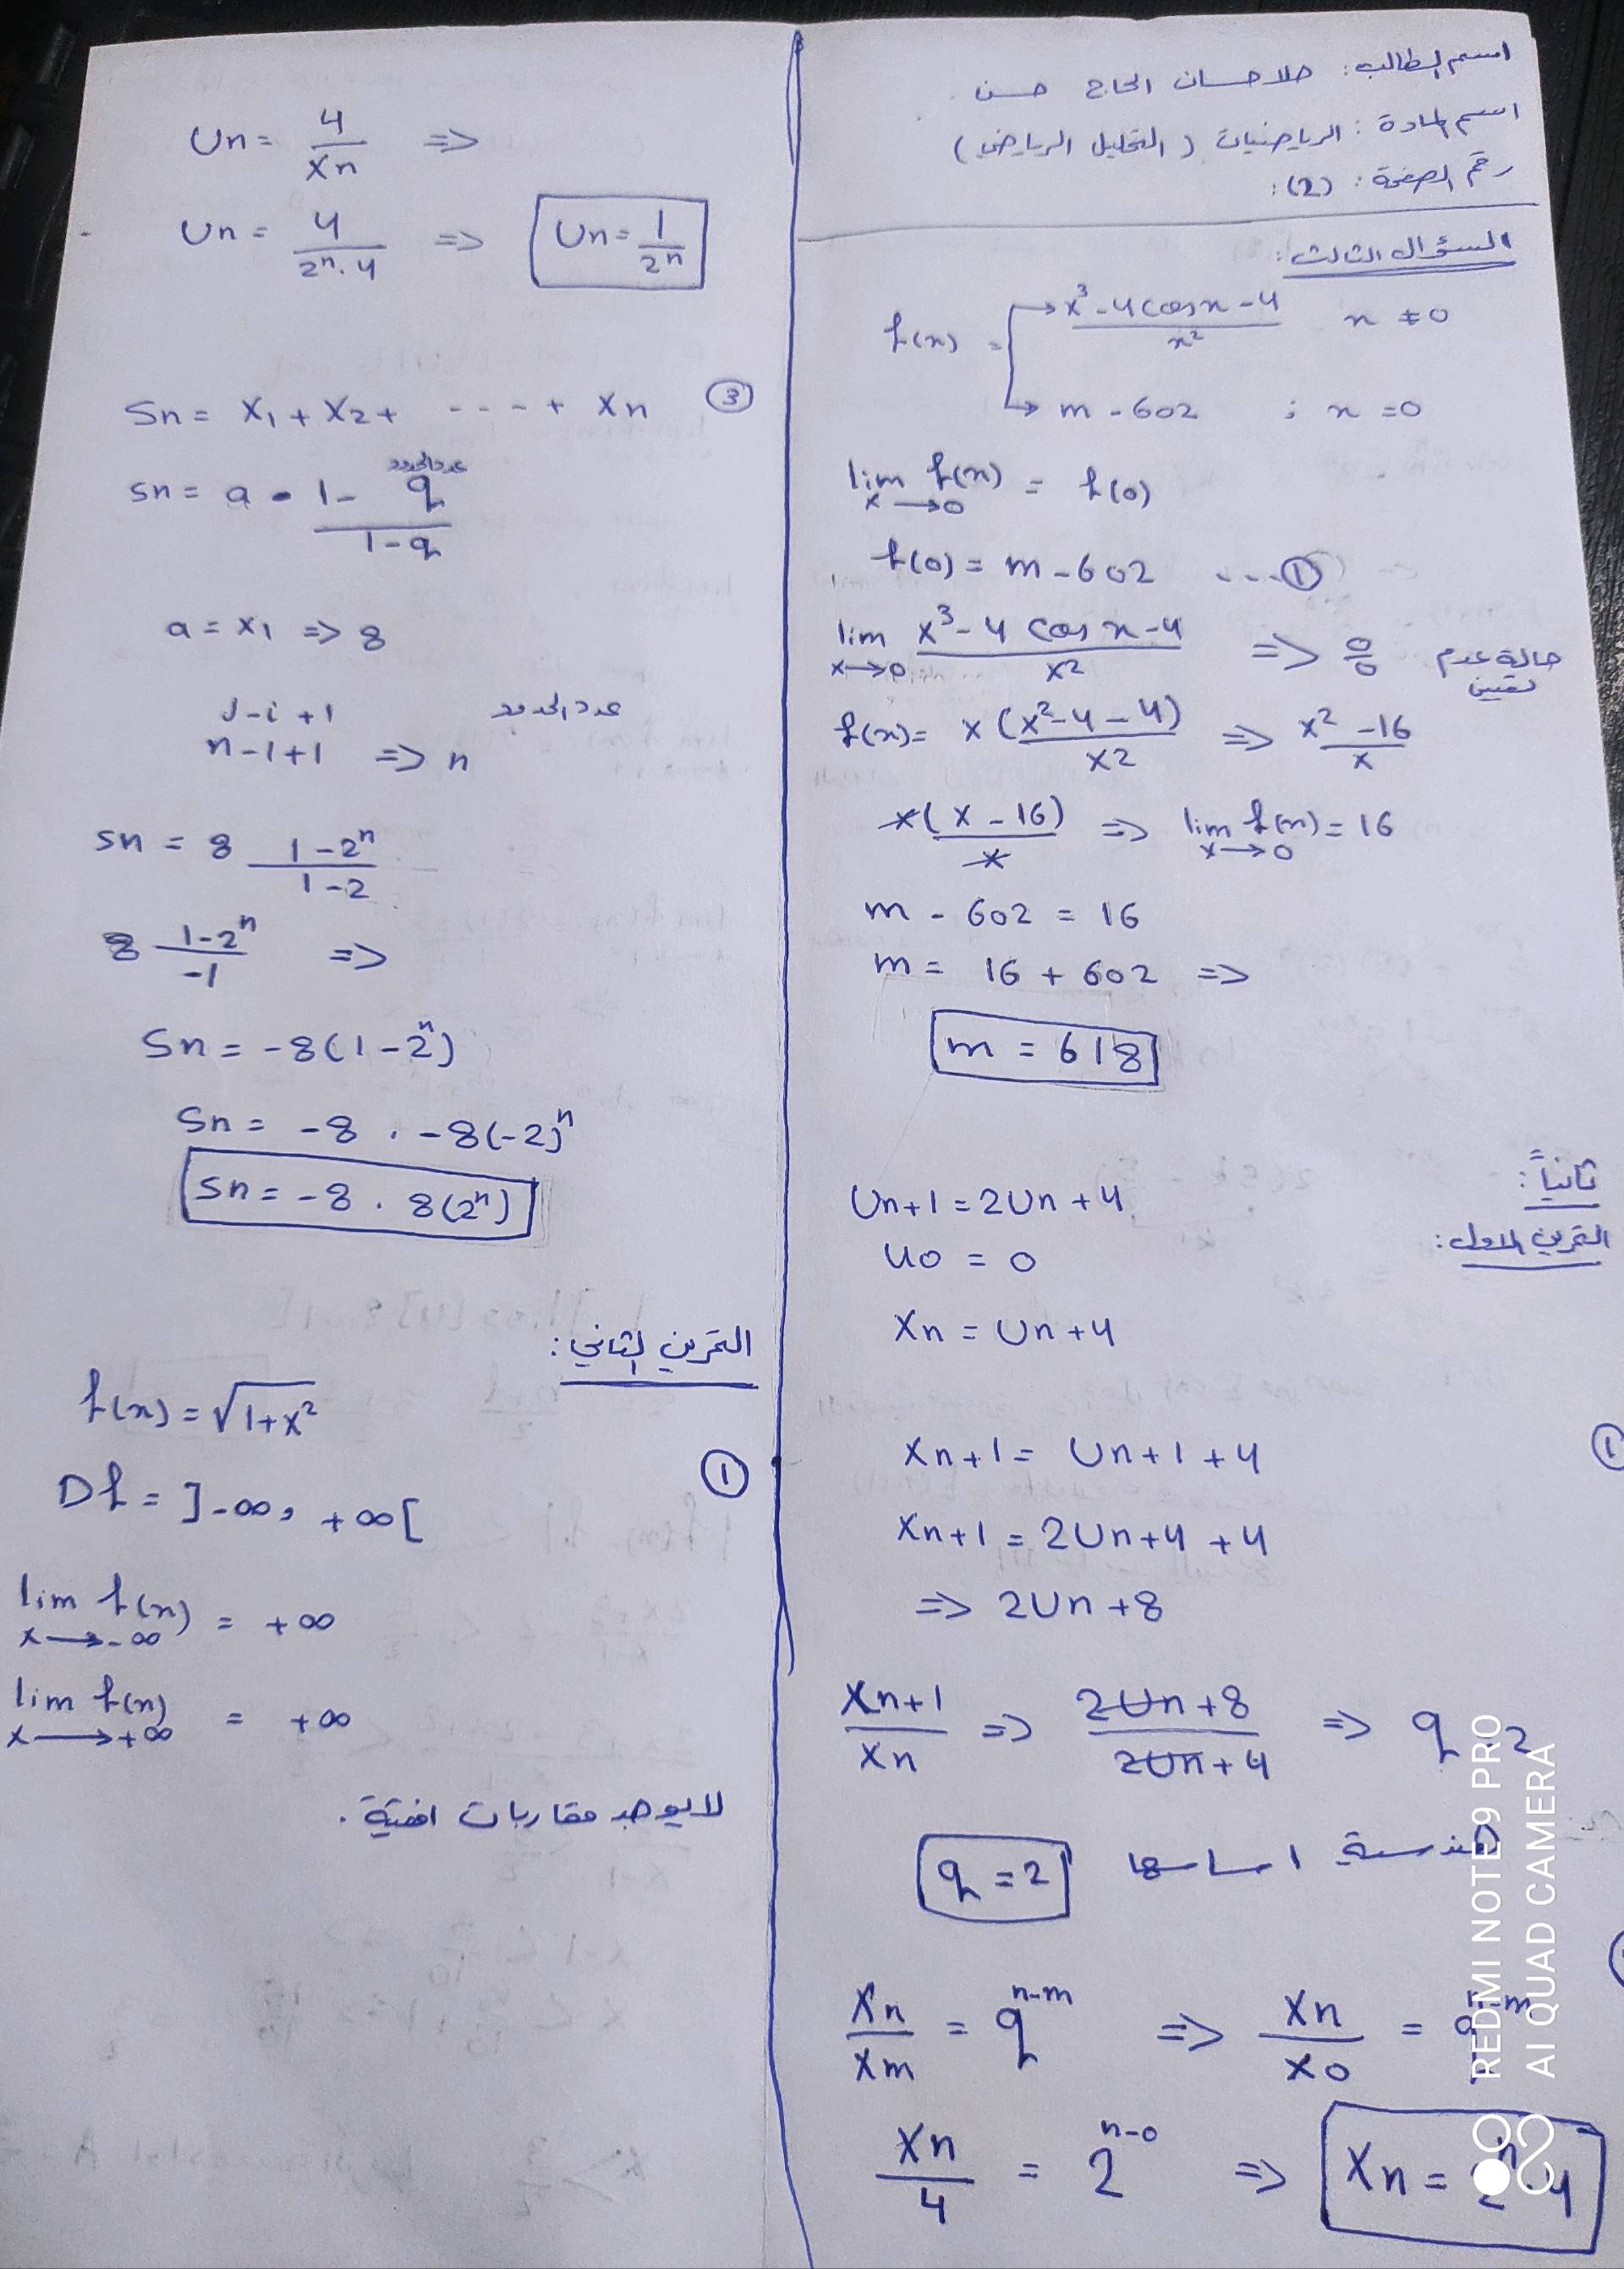 اسم الطالب: حلا حسان الحاج حسن
اسم المادة: الرياضيات (التحليل الرياضي)
رقم الصفحة: (2):
السؤال الثالث:
f(x) = x³ - 4 cos x - 4 / x² x ≠ 0
m - 602 ; x = 0
lim x→0 f(x) = f(0)
f(0) = m - 602 ... ①
lim x→0 x³ - 4 cos x - 4 / x² => 0/0 حالة عدم تعيين
f(x) = x (x² - 4 - 4) / x² => x² - 16 / x
x(x - 16) / x => lim x→0 f(x) = 16
m - 602 = 16
m = 16 + 602 =>
m = 618
ثانياً:
التمرين الاول:
Un+1 = 2Un + 4
U0 = 0
Xn = Un + 4
①
Xn+1 = Un+1 + 4
Xn+1 = 2Un + 4 + 4
=> 2Un + 8
Xn+1 / Xn => 2Un + 8 / 2Un + 4 => q 2
هندسية اساسها q = 2
Xn / Xm = q^n-m => Xn / X0 = q^n-m
Xn / 4 = 2^n-0 => Xn = 2^n . 4
Un = 4 / Xn =>
Un = 4 / 2^n . 4 => Un = 1 / 2^n
③
Sn = X1 + X2 + - - - - + Xn
عدد الحدود
Sn = a . 1 - q / 1 - q
a = X1 => 8
J - i + 1 عدد الحدود
n - 1 + 1 => n
Sn = 8 1 - 2^n / 1 - 2
8 1 - 2^n / -1 =>
Sn = -8(1 - 2^n)
Sn = -8 . -8(-2)^n
Sn = -8 . 8(2^n)
التمرين الثاني:
f(x) = √1 + x²
①
Df = ]-∞, +∞[
lim x→-∞ f(x) = +∞
lim x→+∞ f(x) = +∞
لا يوجد مقاربات افقية.
REDMI NOTE 9 PRO
AI QUAD CAMERA